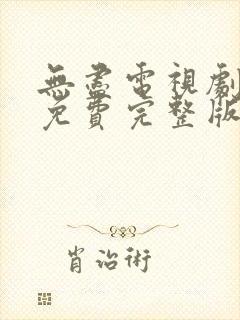 無盡電視劇
免費完整版
肖治術